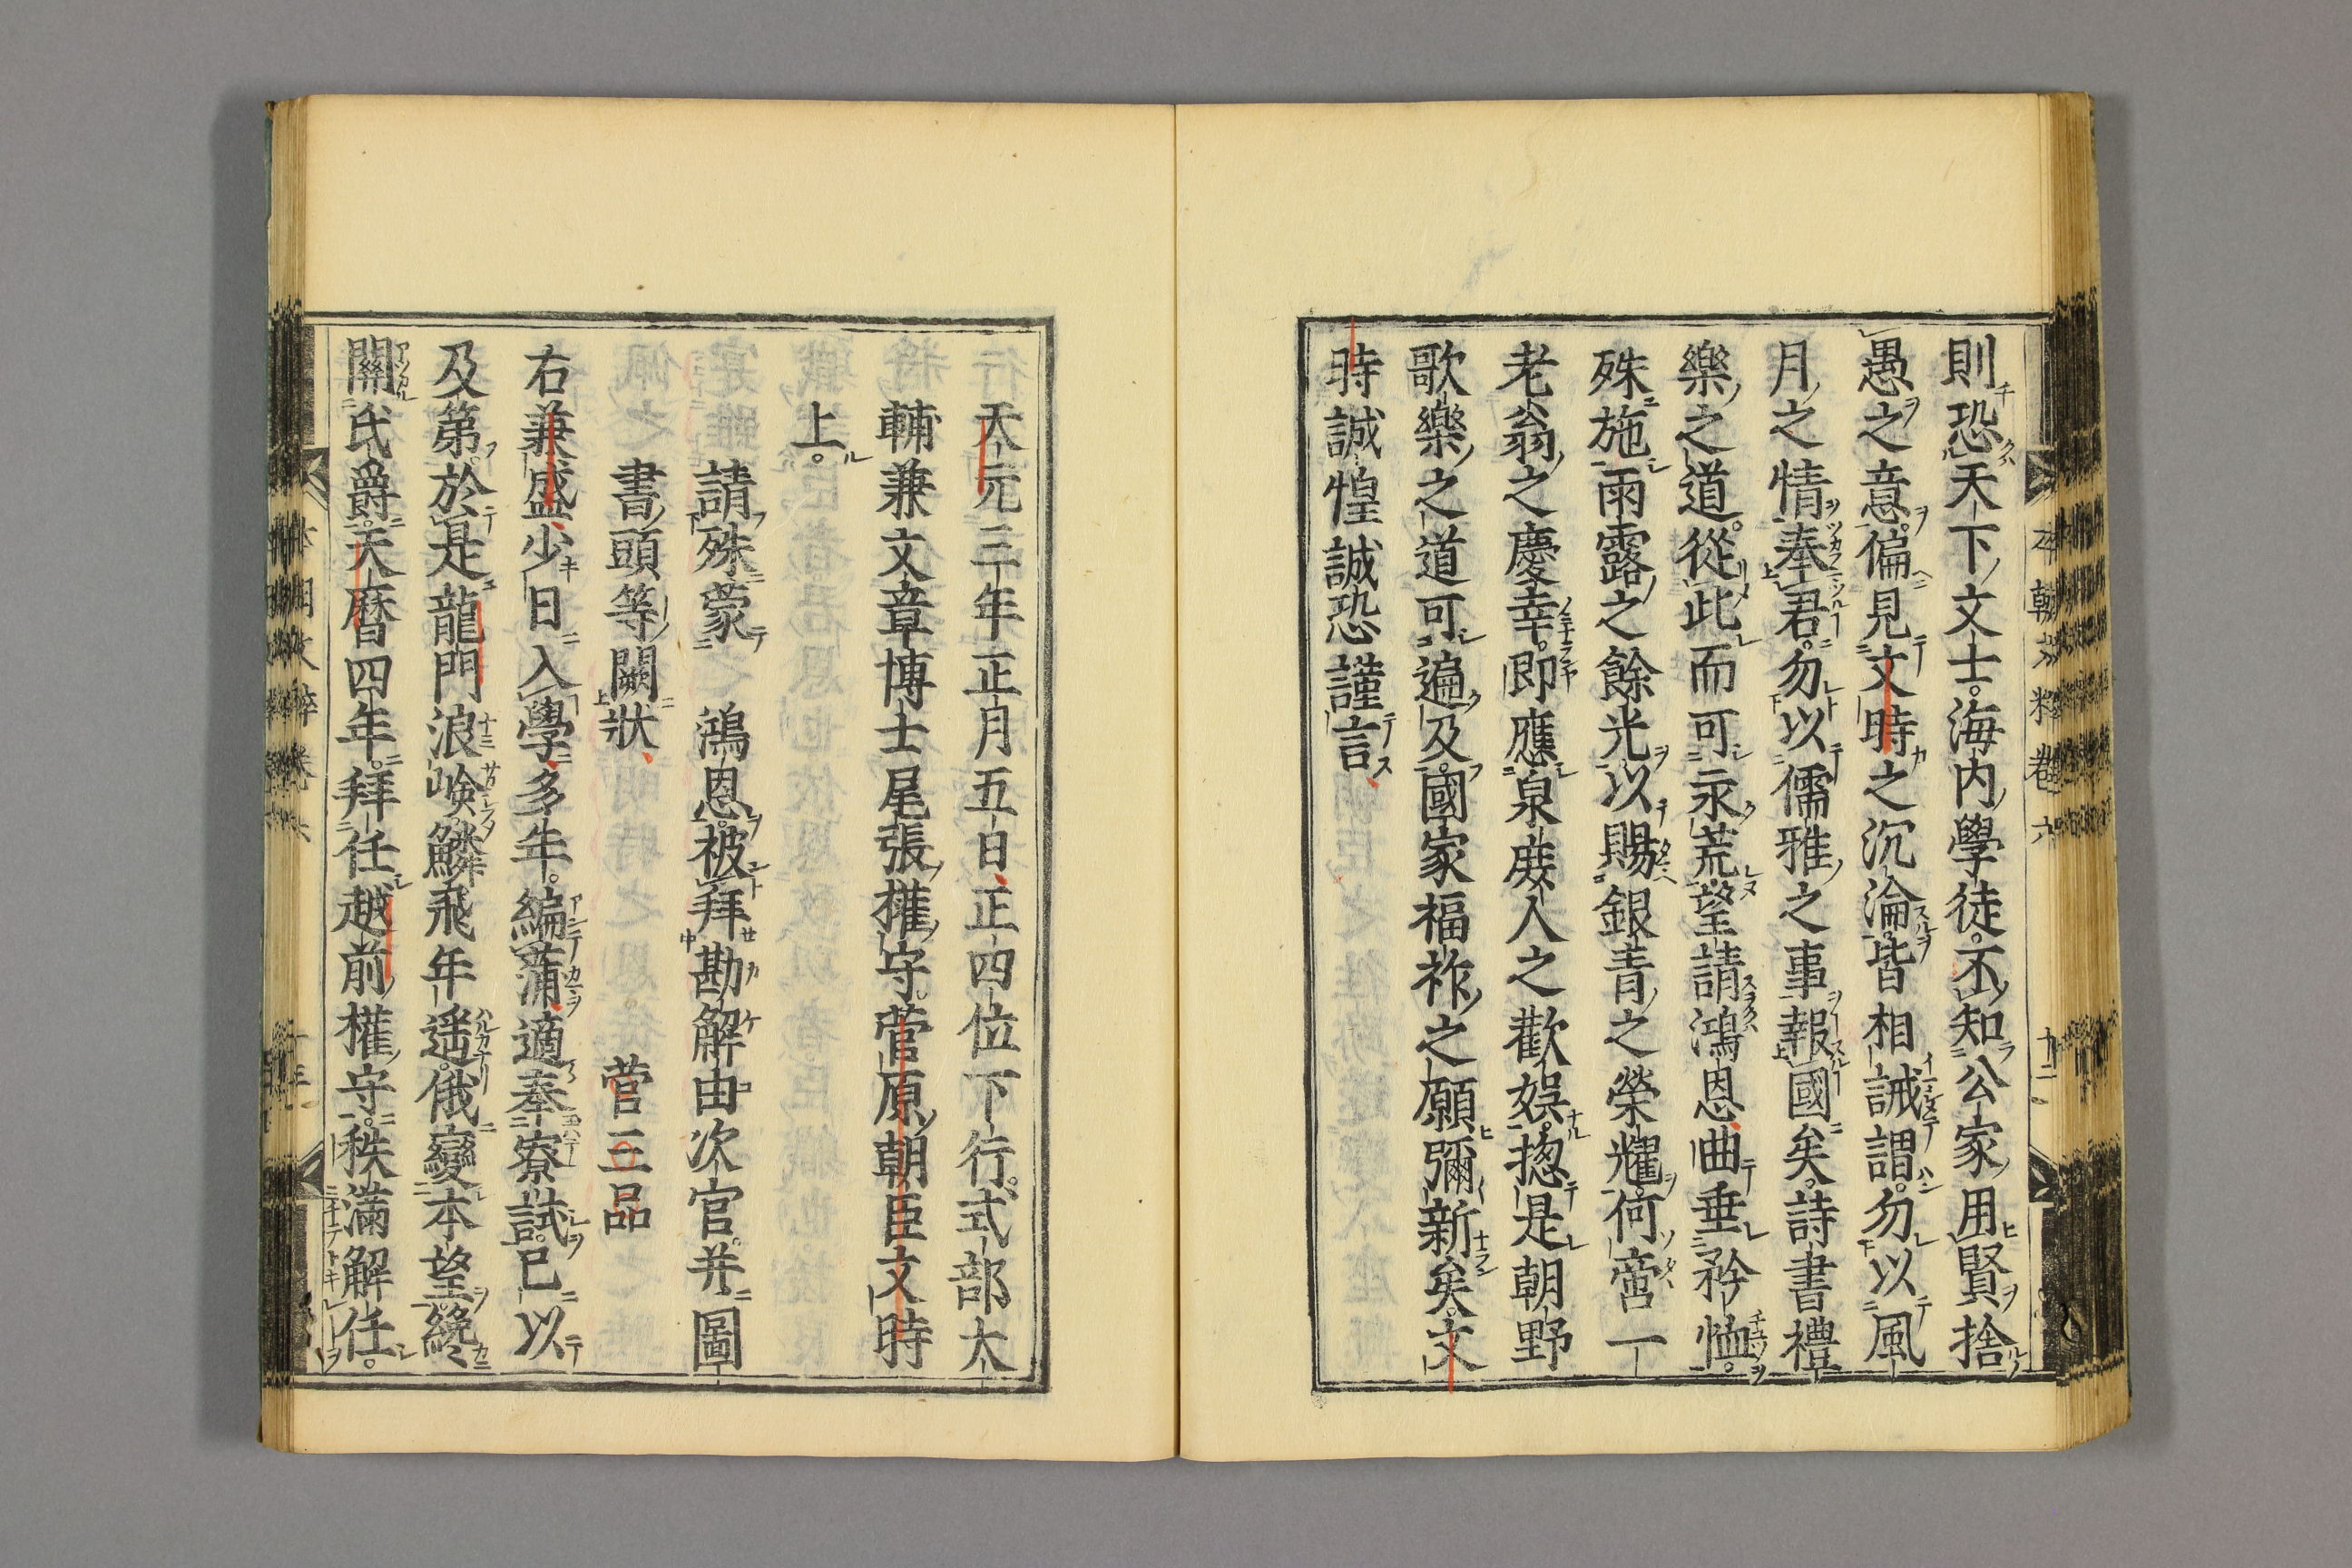 則恐天下文士海内學徒不知公家用賢捨
愚之意偏見文時之沉淪皆相誡謂勿以風
月之情奉君勿以儒雅之事報國矣詩書禮
樂之道從此而可永荒望請鴻恩曲垂矜恤
殊施雨露之餘光以賜銀青之榮耀何啻一
老翁之慶幸即應泉庻人之歡娯惣是朝野
歌樂之道可遍及國家福祚之願彌新矣文
時誠惶誠恐謹言
天元三年正月五日正四位下行式部大
輔兼文章博士尾張權守菅原朝臣文時
上
請殊蒙　鴻恩被拜勘解由次官并圖
書頭等闕狀　菅三品
右兼盛少日入學多年編蒲適奉寮試已以
及第於是龍門浪喚鱗飛年遥俄變本望纔
關氏爵天暦四年拜任越前權守秩滿解任